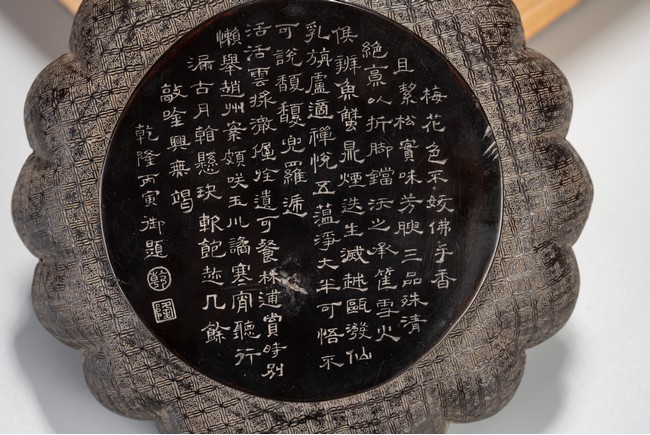 梅花色不妖佛手香
且絜松實味芳腴三品殊清
絕亯以折脚鐺沃之承筐雪火
候辨魚蟹鼎煙迭生滅越甌潑仙
乳旃廬適禪悅五蘊淨大半可悟不
可說馥馥兜羅遞
活活雲漿澈偓佺遺可餐林逋賞時別
懶舉趙州案頗咲玉川譎寒宵聽行
漏古月翰懸玦軟飽趁几餘
敲唫興無竭
乾隆丙寅御題
乾
隆